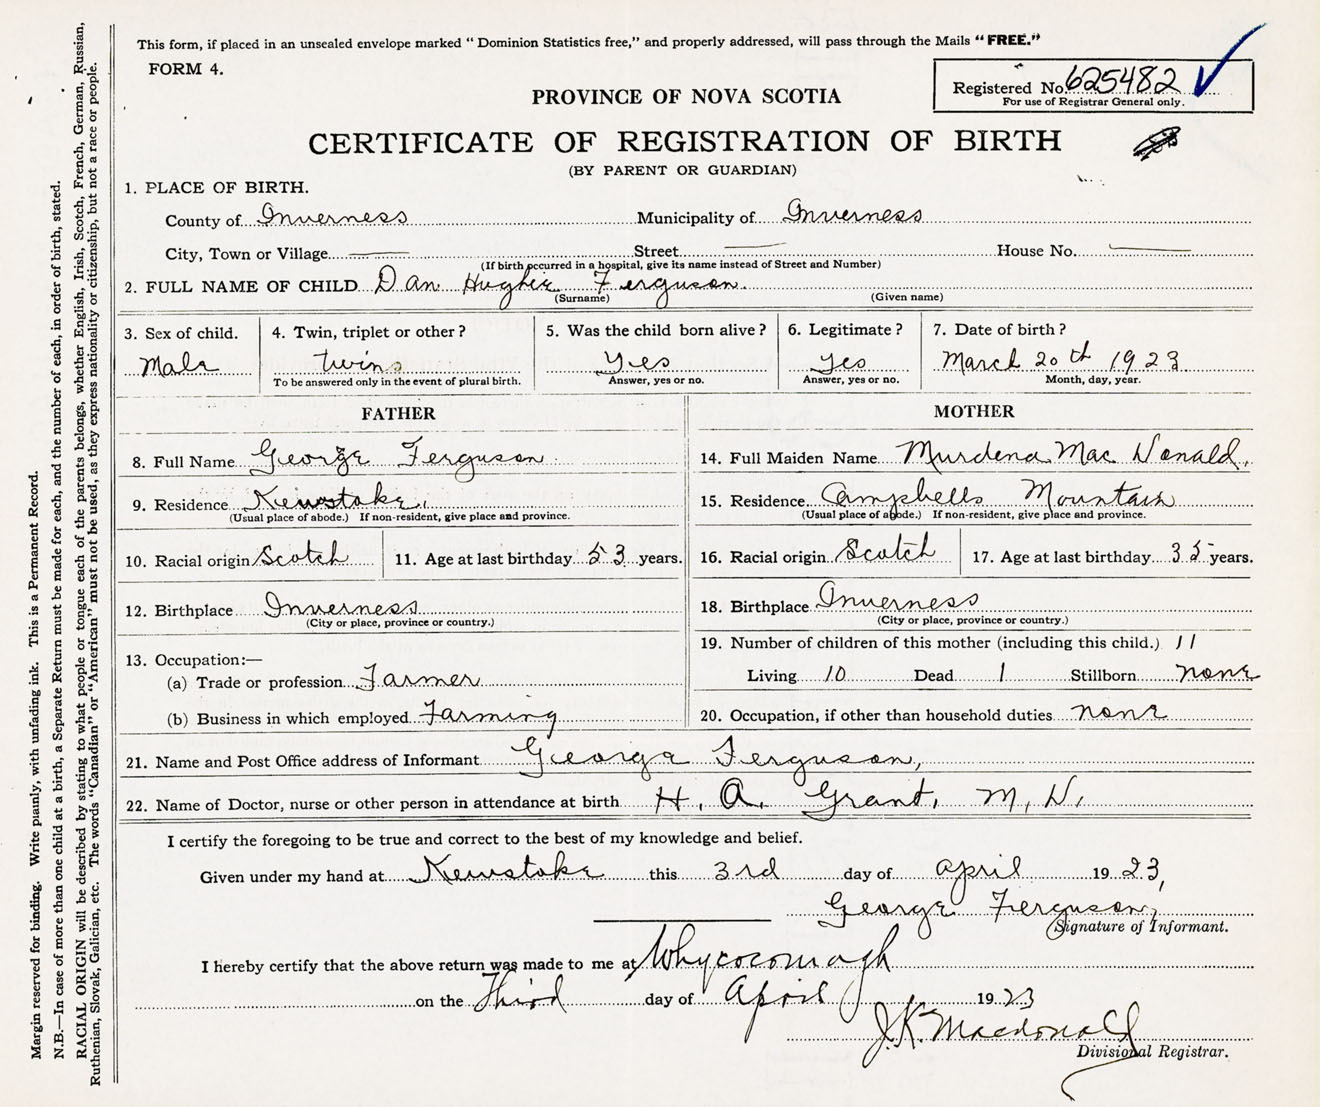 This form, if placed in an unsealed envelope marked "Dominion Statistics free," and properly addressed, will pass through the Mails "FREE."
FORM 4.
Registered No. 625482
For use of Registrar General only.
PROVINCE OF NOVA SCOTIA
CERTIFICATE OF REGISTRATION OF BIRTH
(BY PARENT OR GUARDIAN)
1. PLACE OF BIRTH.
County of Inverness Municipality of Inverness
City, Town or Village Street House No.
(If birth occurred in a hospital, give its name instead of Street and Number)
2. FULL NAME OF CHILD Dan Hughie Ferguson.
(Surname) (Given name)
3. Sex of child. 4. Twin, triplet or other? 5. Was the child born alive? 6. Legitimate? 7. Date of birth?
Male twins Yes Yes March 20th 1923
To be answered only in the event of plural birth. Answer, yes or no. Answer, yes or no. Month, day, year.
FATHER
8. Full Name George Ferguson
9. Residence Kewstoke,
(Usual place of abode.) If non-resident, give place and province.
10. Racial origin Scotch 11. Age at last birthday 53 years.
12. Birthplace Inverness
(City or place, province or country.)
13. Occupation:—
(a) Trade or profession Farmer
(b) Business in which employed Farming
MOTHER
14. Full Maiden Name Murdena Mac Donald.
15. Residence Campbells Mountain
(Usual place of abode.) If non-resident, give place and province.
16. Racial origin Scotch 17. Age at last birthday 35 years.
18. Birthplace Inverness
(City or place, province or country.)
19. Number of children of this mother (including this child.) 11
Living 10 Dead 1 Stillborn none
20. Occupation, if other than household duties none
21. Name and Post Office address of Informant George Ferguson,
22. Name of Doctor, nurse or other person in attendance at birth H. A. Grant, M, D,
I certify the foregoing to be true and correct to the best of my knowledge and belief.
Given under my hand at Kewstoke this 3rd day of April 1923,
George Ferguson,
Signature of Informant.
I hereby certify that the above return was made to me at Whycocomagh
on the Third day of April 1923
J. K. Macdonald
Divisional Registrar.
Margin reserved for binding. Write plainly, with unfading ink. This is a Permanent Record.
N.B.—In case of more than one child at a birth, a Separate Return must be made for each, and the number of each, in order of birth, stated.
RACIAL ORIGIN will be described by stating to what people or tongue each of the parents belongs, whether English, Irish, Scotch, French, German, Russian,
Ruthenian, Slovak, Galician, etc. The words "Canadian" or "American" must not be used, as they express nationality or citizenship, but not a race or people.